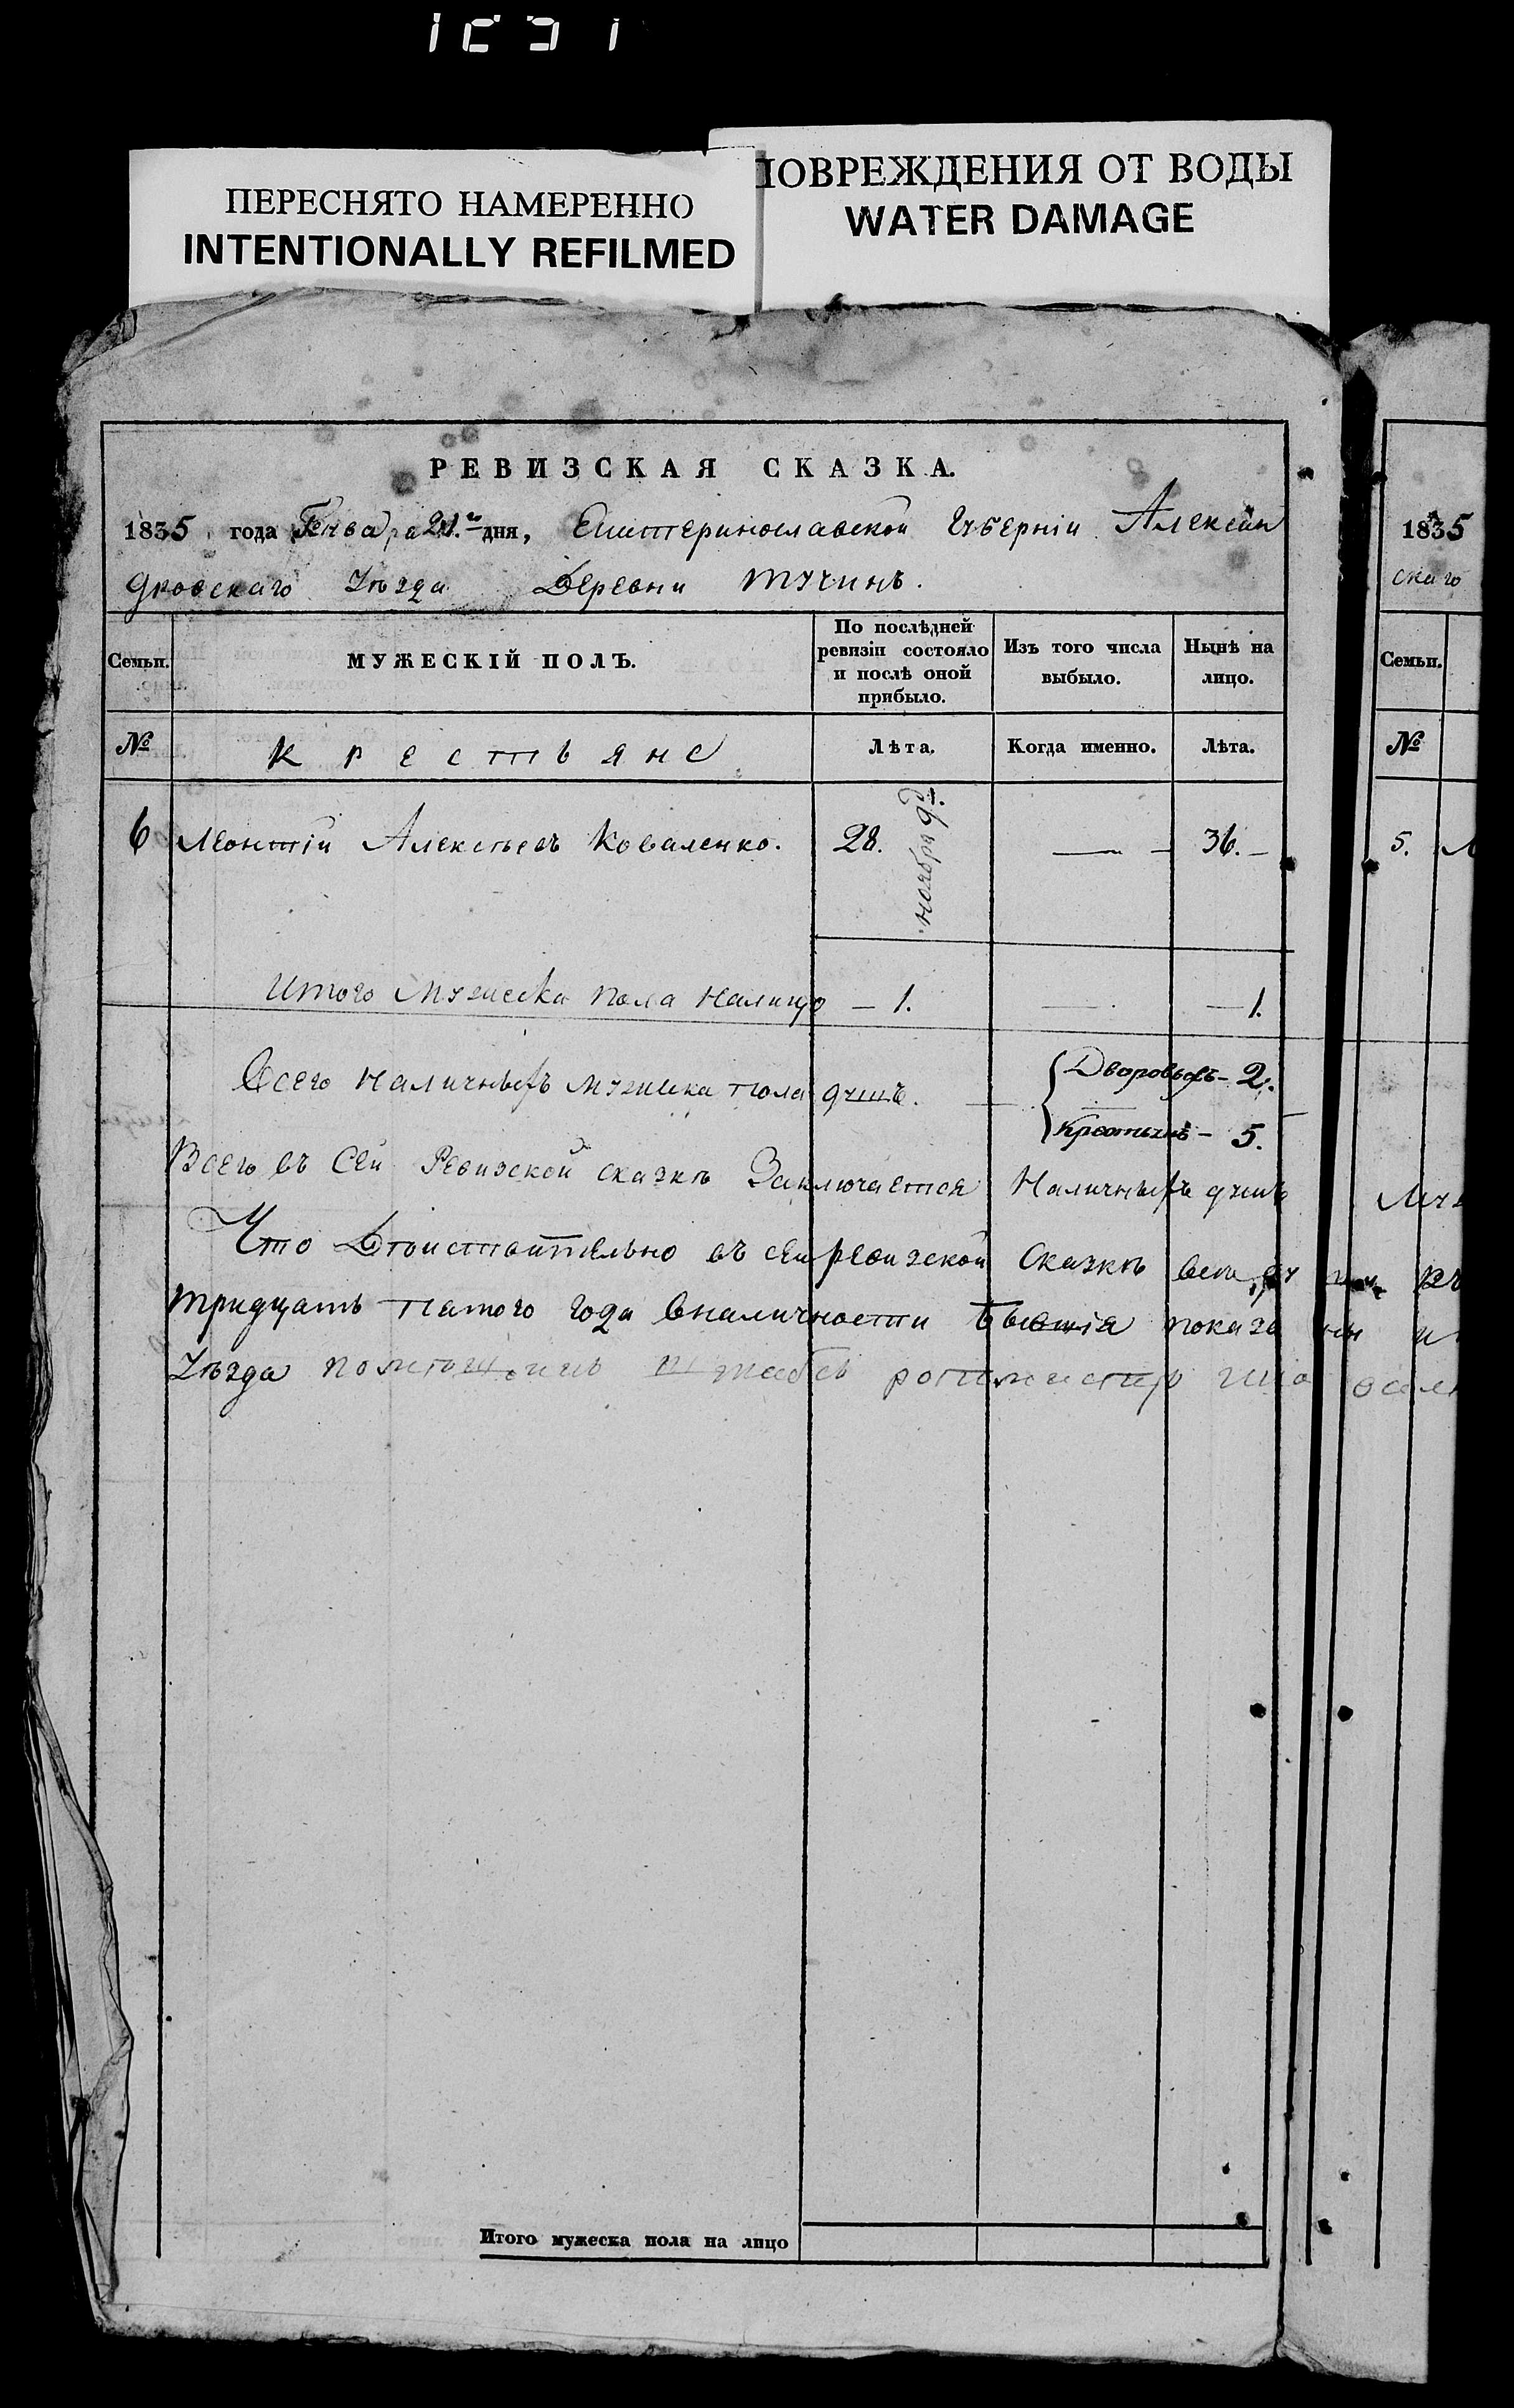 ПЕРЕСНЯТО НАМЕРЕННО
INTENTIONALLY REFILMED
ПОВРЕЖДЕНИЯ ОТ ВОДЫ
WATER DAMAGE
РЕВИЗСКАЯ СКАЗКА.
1835 года Генваря 21.го дня, Екатеринославской Губерніи Алексан
дровскаго Уѣзда Деревни
Семьи. МУЖЕСКІЙ ПОЛЪ. По послѣдней ревизіи состояло и послѣ оной прибыло. Изъ того числа выбыло. Нынѣ на лицо.
№ Крестьяне Лѣта. Когда именно. Лѣта.
6 Леонтій Алексѣевъ Коваленко. 28. ноября 9д. — 36.
Итого Мужеска пола налицо — 1. — 1.
Всего наличныхъ мужеска пола душъ. Дворовыхъ — 2.
Крестьянъ — 5.
Всего въ Сей Ревизской сказкѣ Заключается Наличныхъ душъ
Что Дѣйствительно въ сей ревизской Сказкѣ все
тридцать пятого года вналичности бывшія показаны
Уѣзда
Итого мужеска пола на лицо
1835
скаго
Семьи.
№
5.